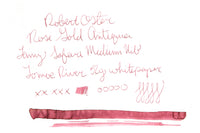 Robert Oster
Rose Gold Antiqua
Lamy Safari Medium Nib
Tomoe River 52g white paper
xx xxx